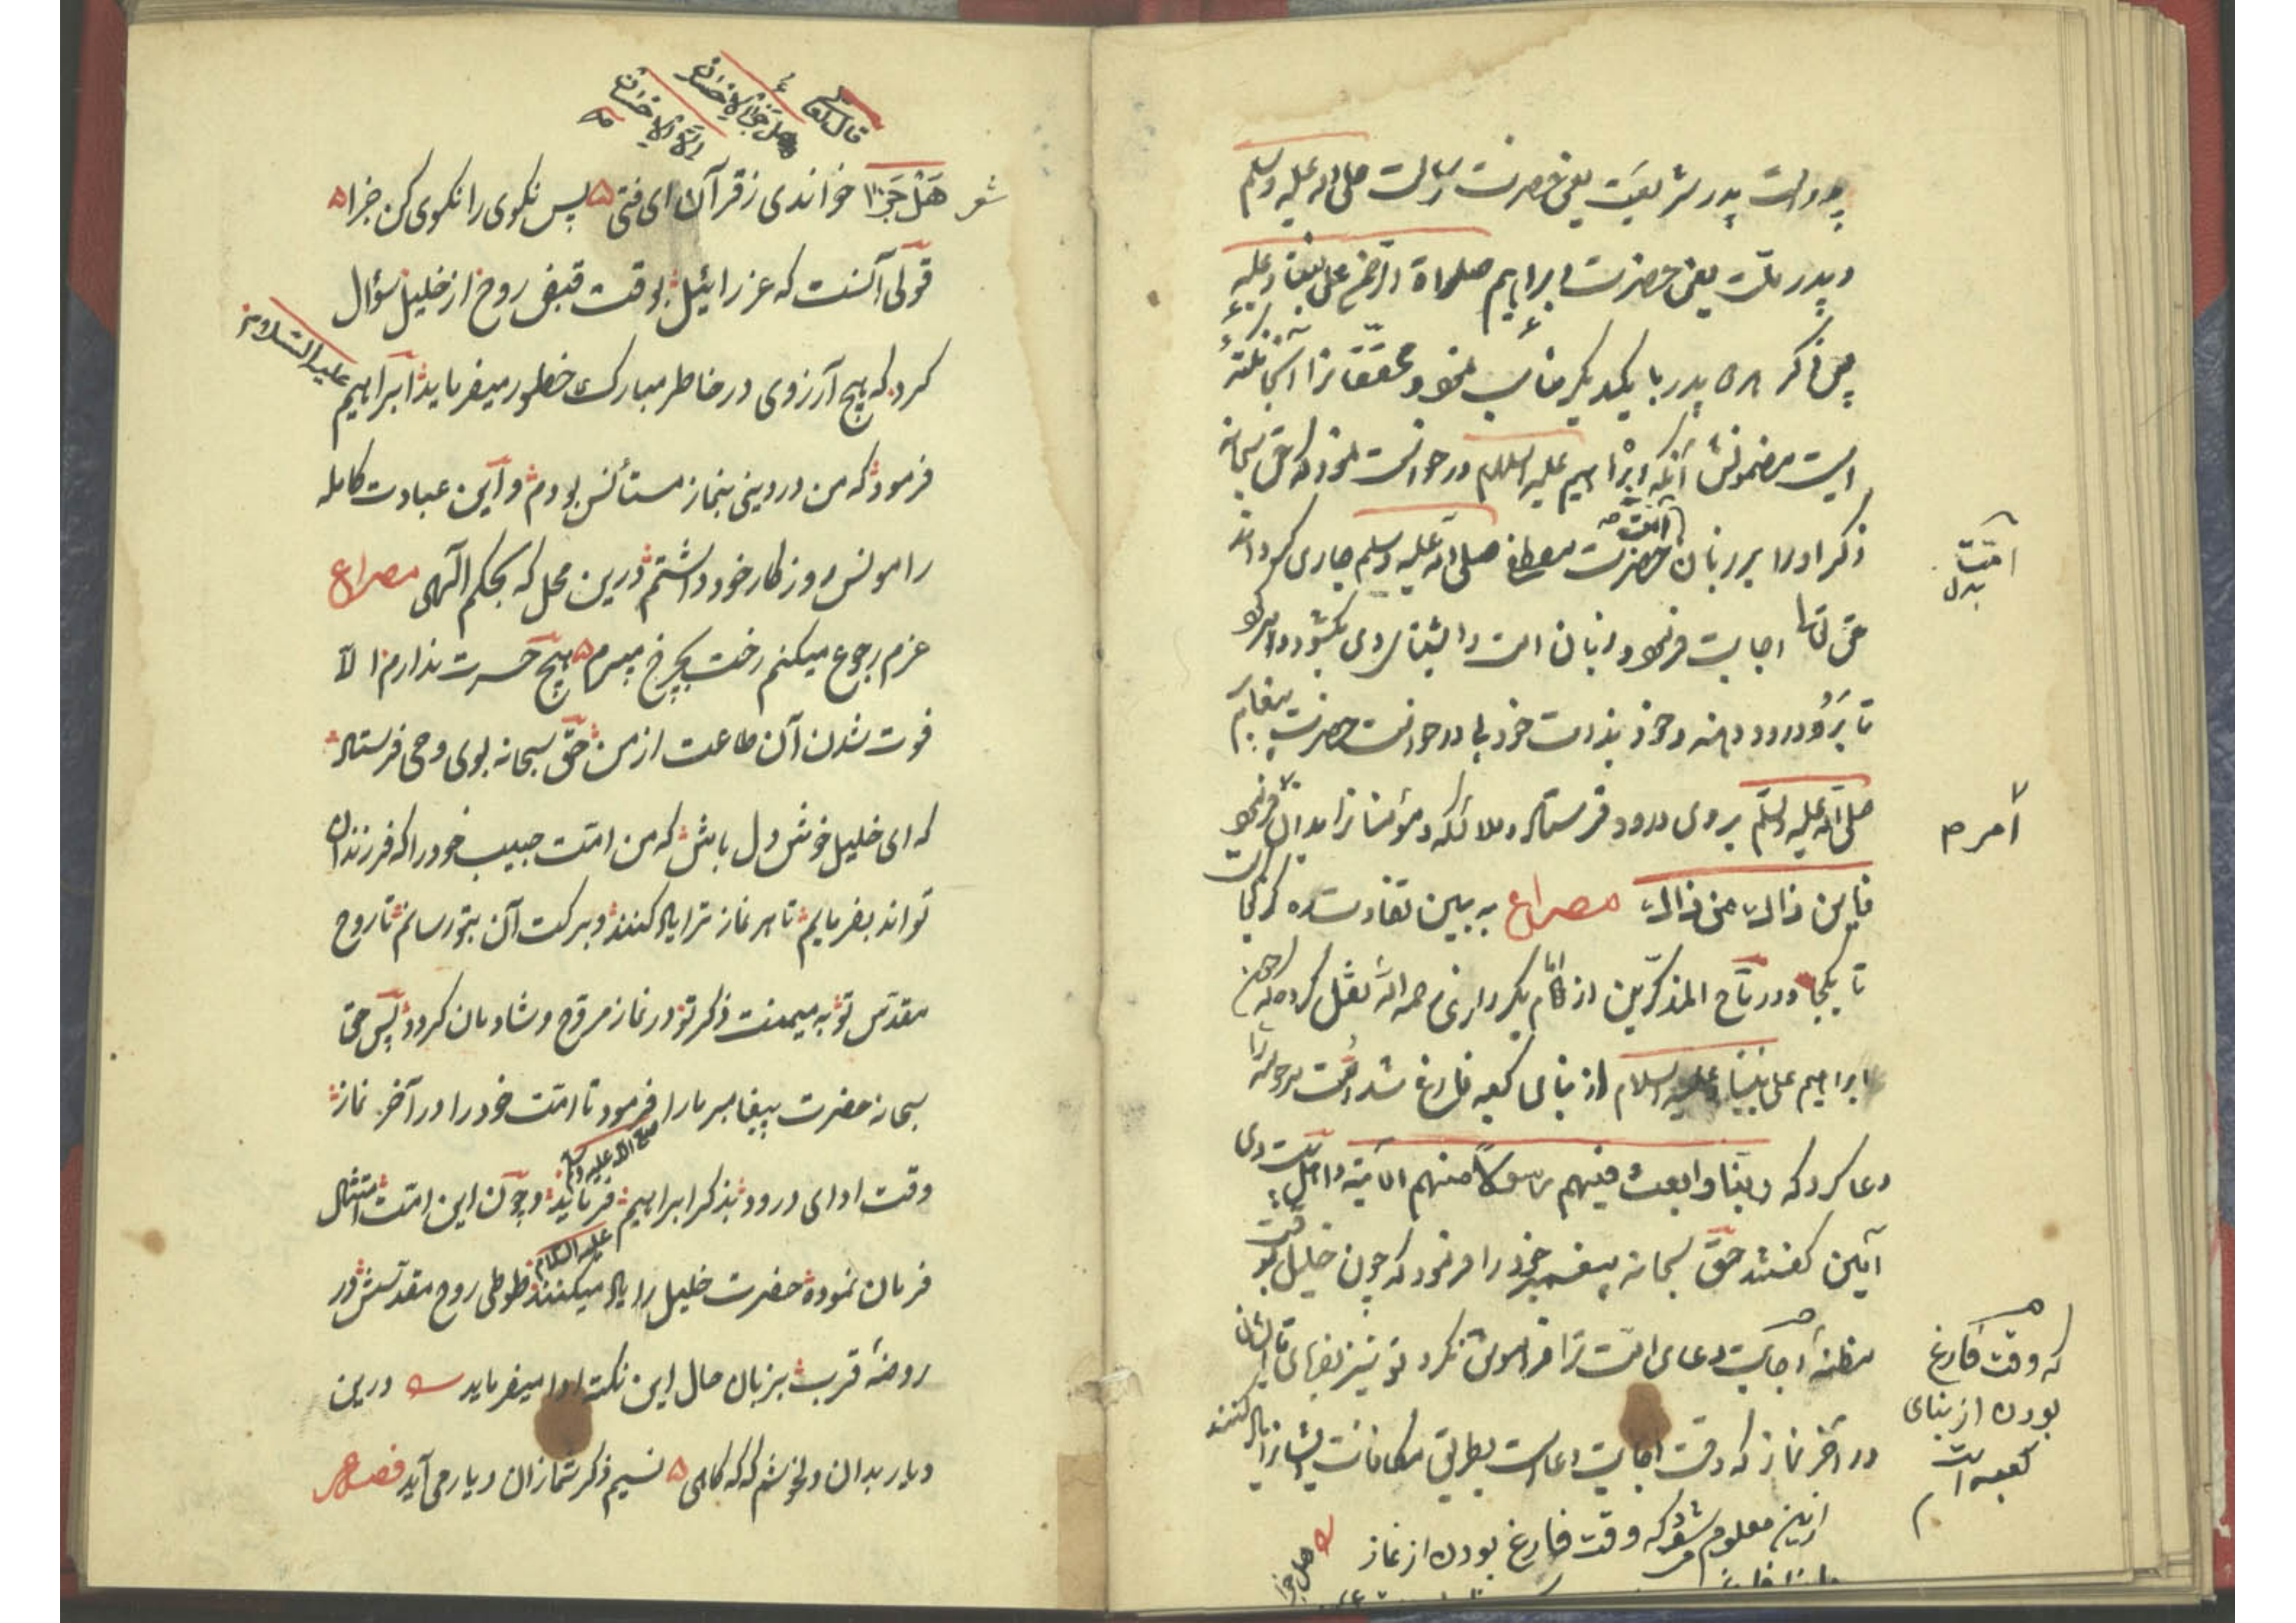 پدر شریعت یعنی حضرت رسالت صلی الله علیه وسلم
و پدر ملت یعنی حضرت ابراهیم صلوات الرحمن علی نبینا و علیه
پس ذکر پدر با یکدیگر مناسب نمود و محققانرا اینجا نکته
ایست مضمونش آنکه ابراهیم علیه السلام درخواست نمود که حق سبحانه
ذکر او را بر زبان امت حضرت مصطفی صلی الله علیه وسلم جاری گرداند
حق تعالی اجابت فرمود و زبان امت را بثنای وی بگشود و امر کرد
تا برو درود دهند و خود بذات خود بی درخواست حضرت پیغامبر
صلی الله علیه وسلم بروی درود فرستاد و ملائکه و مؤمنانرا بدان فرمود
فاین ذالک من ذالک مصراع به بین تفاوت ره کز کجاست
تا بکجا و در تاج المذکرین از امام رحمه الله نقل کرده که چون
ابراهیم علی نبینا و علیه السلام از بنای کعبه فارغ شد امت مرحومه را
دعا کرد که ربنا وابعث فیهم رسولا منهم الآیة و اهل بیت وی
آمین گفتند حق سبحانه پیغمبر خود را فرمود که چون خلیل تو وقت
مظنهٔ اجابت دعای امت ترا فراموش نکرد تو نیز بفرمای تا ایشان
در آخر نماز که وقت اجابت دعاست بطریق مکافات ایشانرا یاد کنند
ازین معلوم شود که وقت فارغ بودن از نماز
امت
بدل
امرم
که وقت فارغ
بودن از بنای
کعبه است
هل جزا
قال الله تعالی
هل جزاء الاحسان
الا الاحسان
شعر هل جزا خواندی ز قرآن ای فتی پس نکوی را نکوی کن جزا
قولی آنست که عزرائیل بوقت قبض روح از خلیل سؤال
کرد که هیچ آرزوی در خاطر مبارک خطور میفرماید ابراهیم علیه السلام
فرمود که من در دینی بنماز مستأنس بودم و این عبادت کامله
را مونس روزکار خود داشتم درین محل که بحکم الهی مصراع
عزم رجوع میکنم رخت بچرخ میبرم هیچ حسرت ندارم الا
فوت شدن آن طاعت از من حق سبحانه بوی وحی فرستاد
که ای خلیل خوش دل باش که من امت حبیب خود را که فرزندان
تواند بفرمایم تا هر نماز ترا یاد کنند و برکت آن بتو رسانم تا روح
مقدس تو به میمنت ذکر تو در نماز مروح و شادمان کردد پس حق
سبحانه حضرت پیغامبر ما را فرمود تا امت خود را در آخر نماز
صلی الله علیه وسلم
وقت ادای درود بذکر ابراهیم فرماید و چون این امت امتثال
علیه السلام
فرمان نموده حضرت خلیل را یاد میکنند طوطی روح مقدسش در
روضهٔ قرب بزبان حال این نکته ادا میفرماید درین
دیار بدان دلخوشم که که کاهی نسیم ذکر شما زان دیار می آید فصل